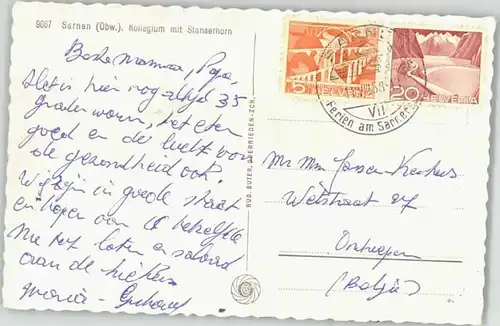 9067 Sarnen (Obw.). Kollegium mit Stanserhorn
Beste mama, Papa
Het is hier nog altijd 35
graden warm, het eten
goed en de lucht voor
de gezondheid ook.
Wij zijn in goede staat
en hopen van U hetzelfde
me tot later en saluad
aan de
Maria - Gerhard
RUD. SUTER, OBERRIEDEN-ZCH.
5 HELVETIA
20 HELVETIA
SARNEN
VII
Ferien am Sarnersee
Mr Mm Jansen
Wetstraat 27
Antwerpen
(België)